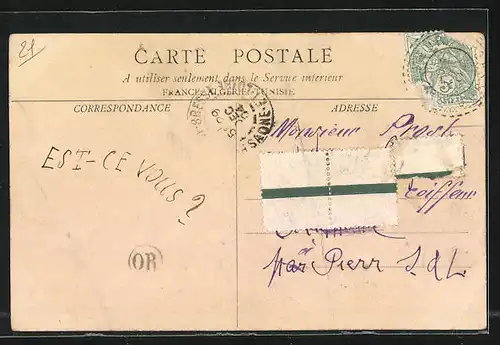 21
CARTE POSTALE
A utiliser seulement dans le Service intérieur
FRANCE-ALGÉRIE-TUNISIE
CORRESPONDANCE
ADRESSE
Monsieur Prost
EST-CE VOUS?
Coiffeur
par Pierr S. d L
OR